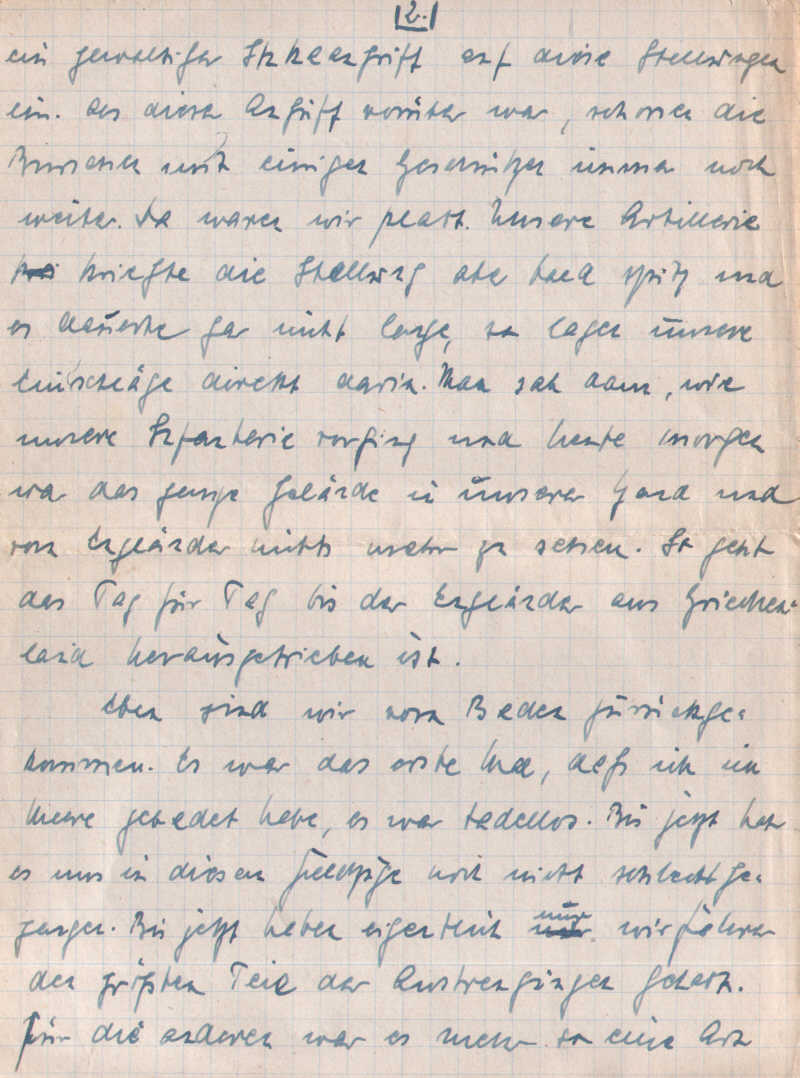 2.
ein gewaltiger Stukaangriff auf diese Stellungen
ein. Als dieser Angriff vorüber war, schossen die
Burschen mit einigen Geschützen immer noch
weiter. Da waren wir platt. Unsere Artillerie
kriegte die Stellung aber bald spitz und
es dauerte gar nicht lange, da lagen unsere
Einschläge direkt darin. Man sah dann, wie
unsere Infanterie vorging und heute morgen
war das ganze Gelände in unserer Hand und
vom Engländer nichts mehr zu sehen. So geht
das Tag für Tag bis der Engländer aus Griechen-
land herausgetrieben ist.
Eben sind wir vom Baden zurückge-
kommen. Es war das erste Mal, daß ich im
Meere gebadet habe, es war tadellos. Bis jetzt hat
es uns in diesem Feldzüge noch nicht schlecht ge-
gangen. Bis jetzt haben eigentlich nur wir Fahrer
den größten Teil der Anstrengungen gehabt.
Für die anderen war es mehr so eine Art